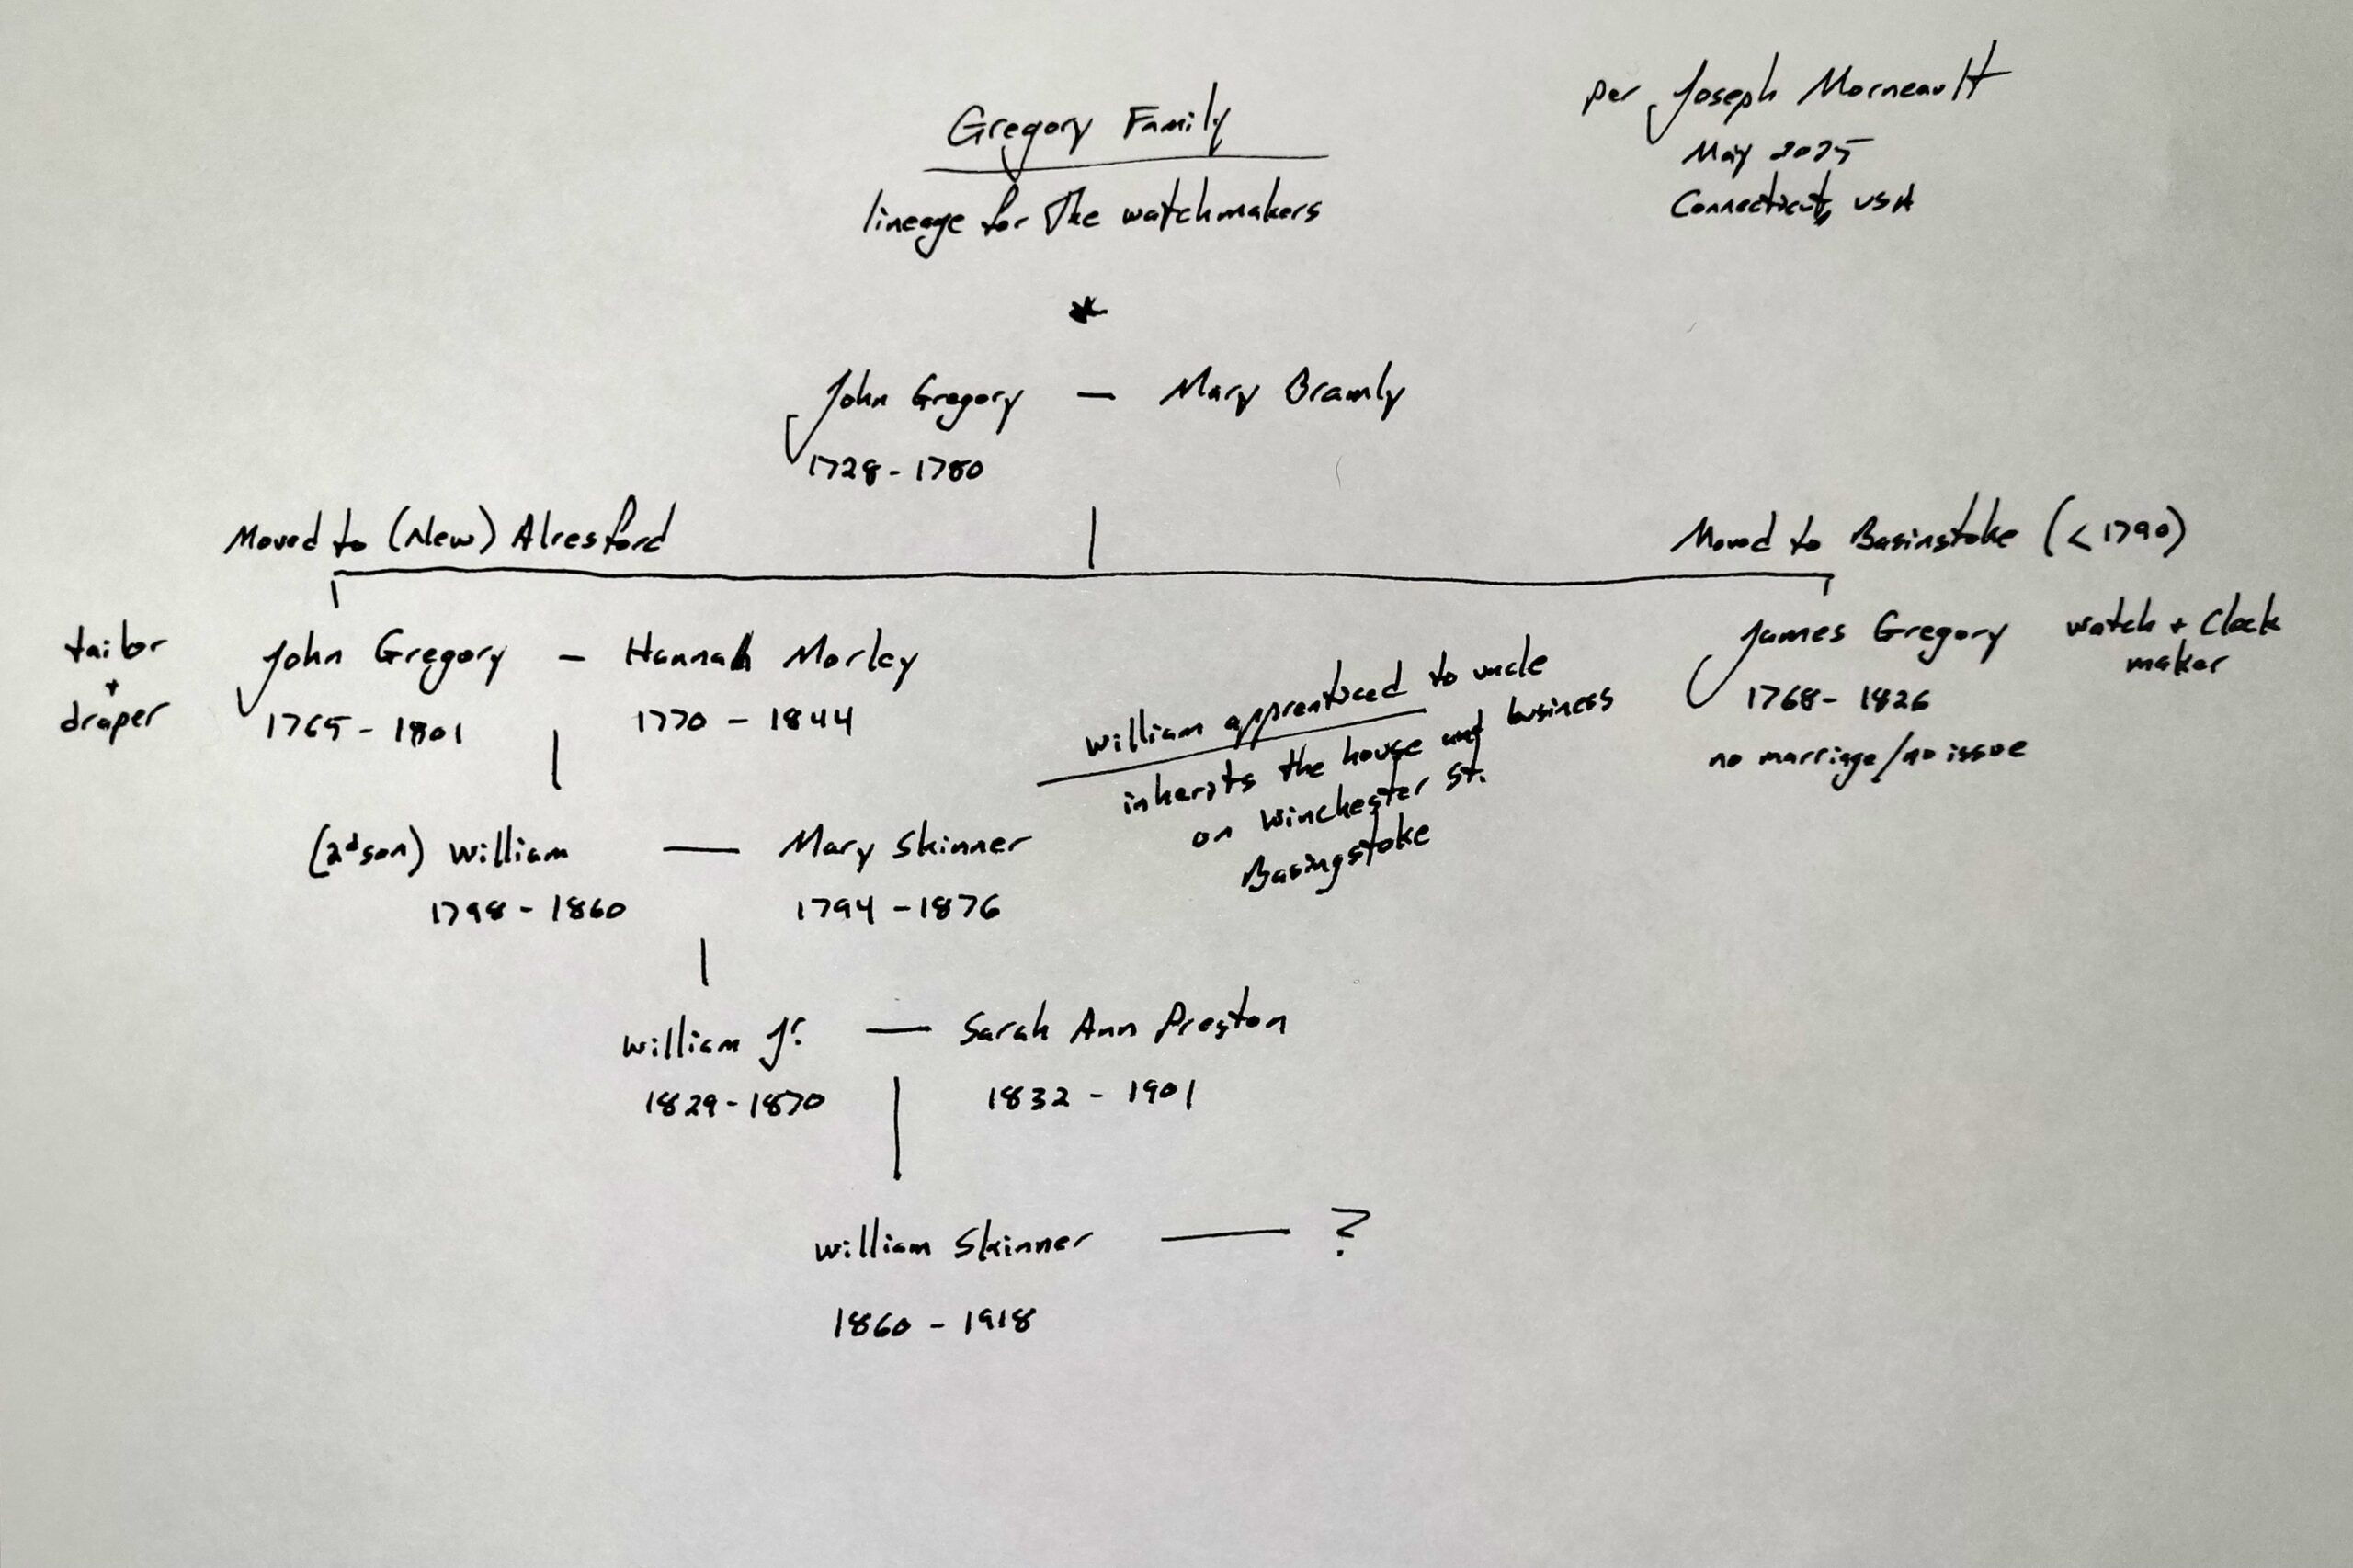 Gregory Family
lineage for The watchmakers
per Joseph Morneault
May 2025
Connecticut, USA
*
John Gregory — Mary Bramly
1728 - 1780
Moved to (New) Alresford
Moved to Basinstoke (<1790)
tailor
+
draper
John Gregory — Hannah Morley
1765 - 1801
1770 - 1844
James Gregory
1768 - 1826
no marriage/no issue
watch + Clock
maker
william apprenticed to uncle
inherits the house and business
on Winchester St.
Basingstoke
(2d son) William — Mary Skinner
1798 - 1860
1794 - 1876
William Jr. — Sarah Ann Preston
1829 - 1870
1832 - 1901
William Skinner — ?
1860 - 1918